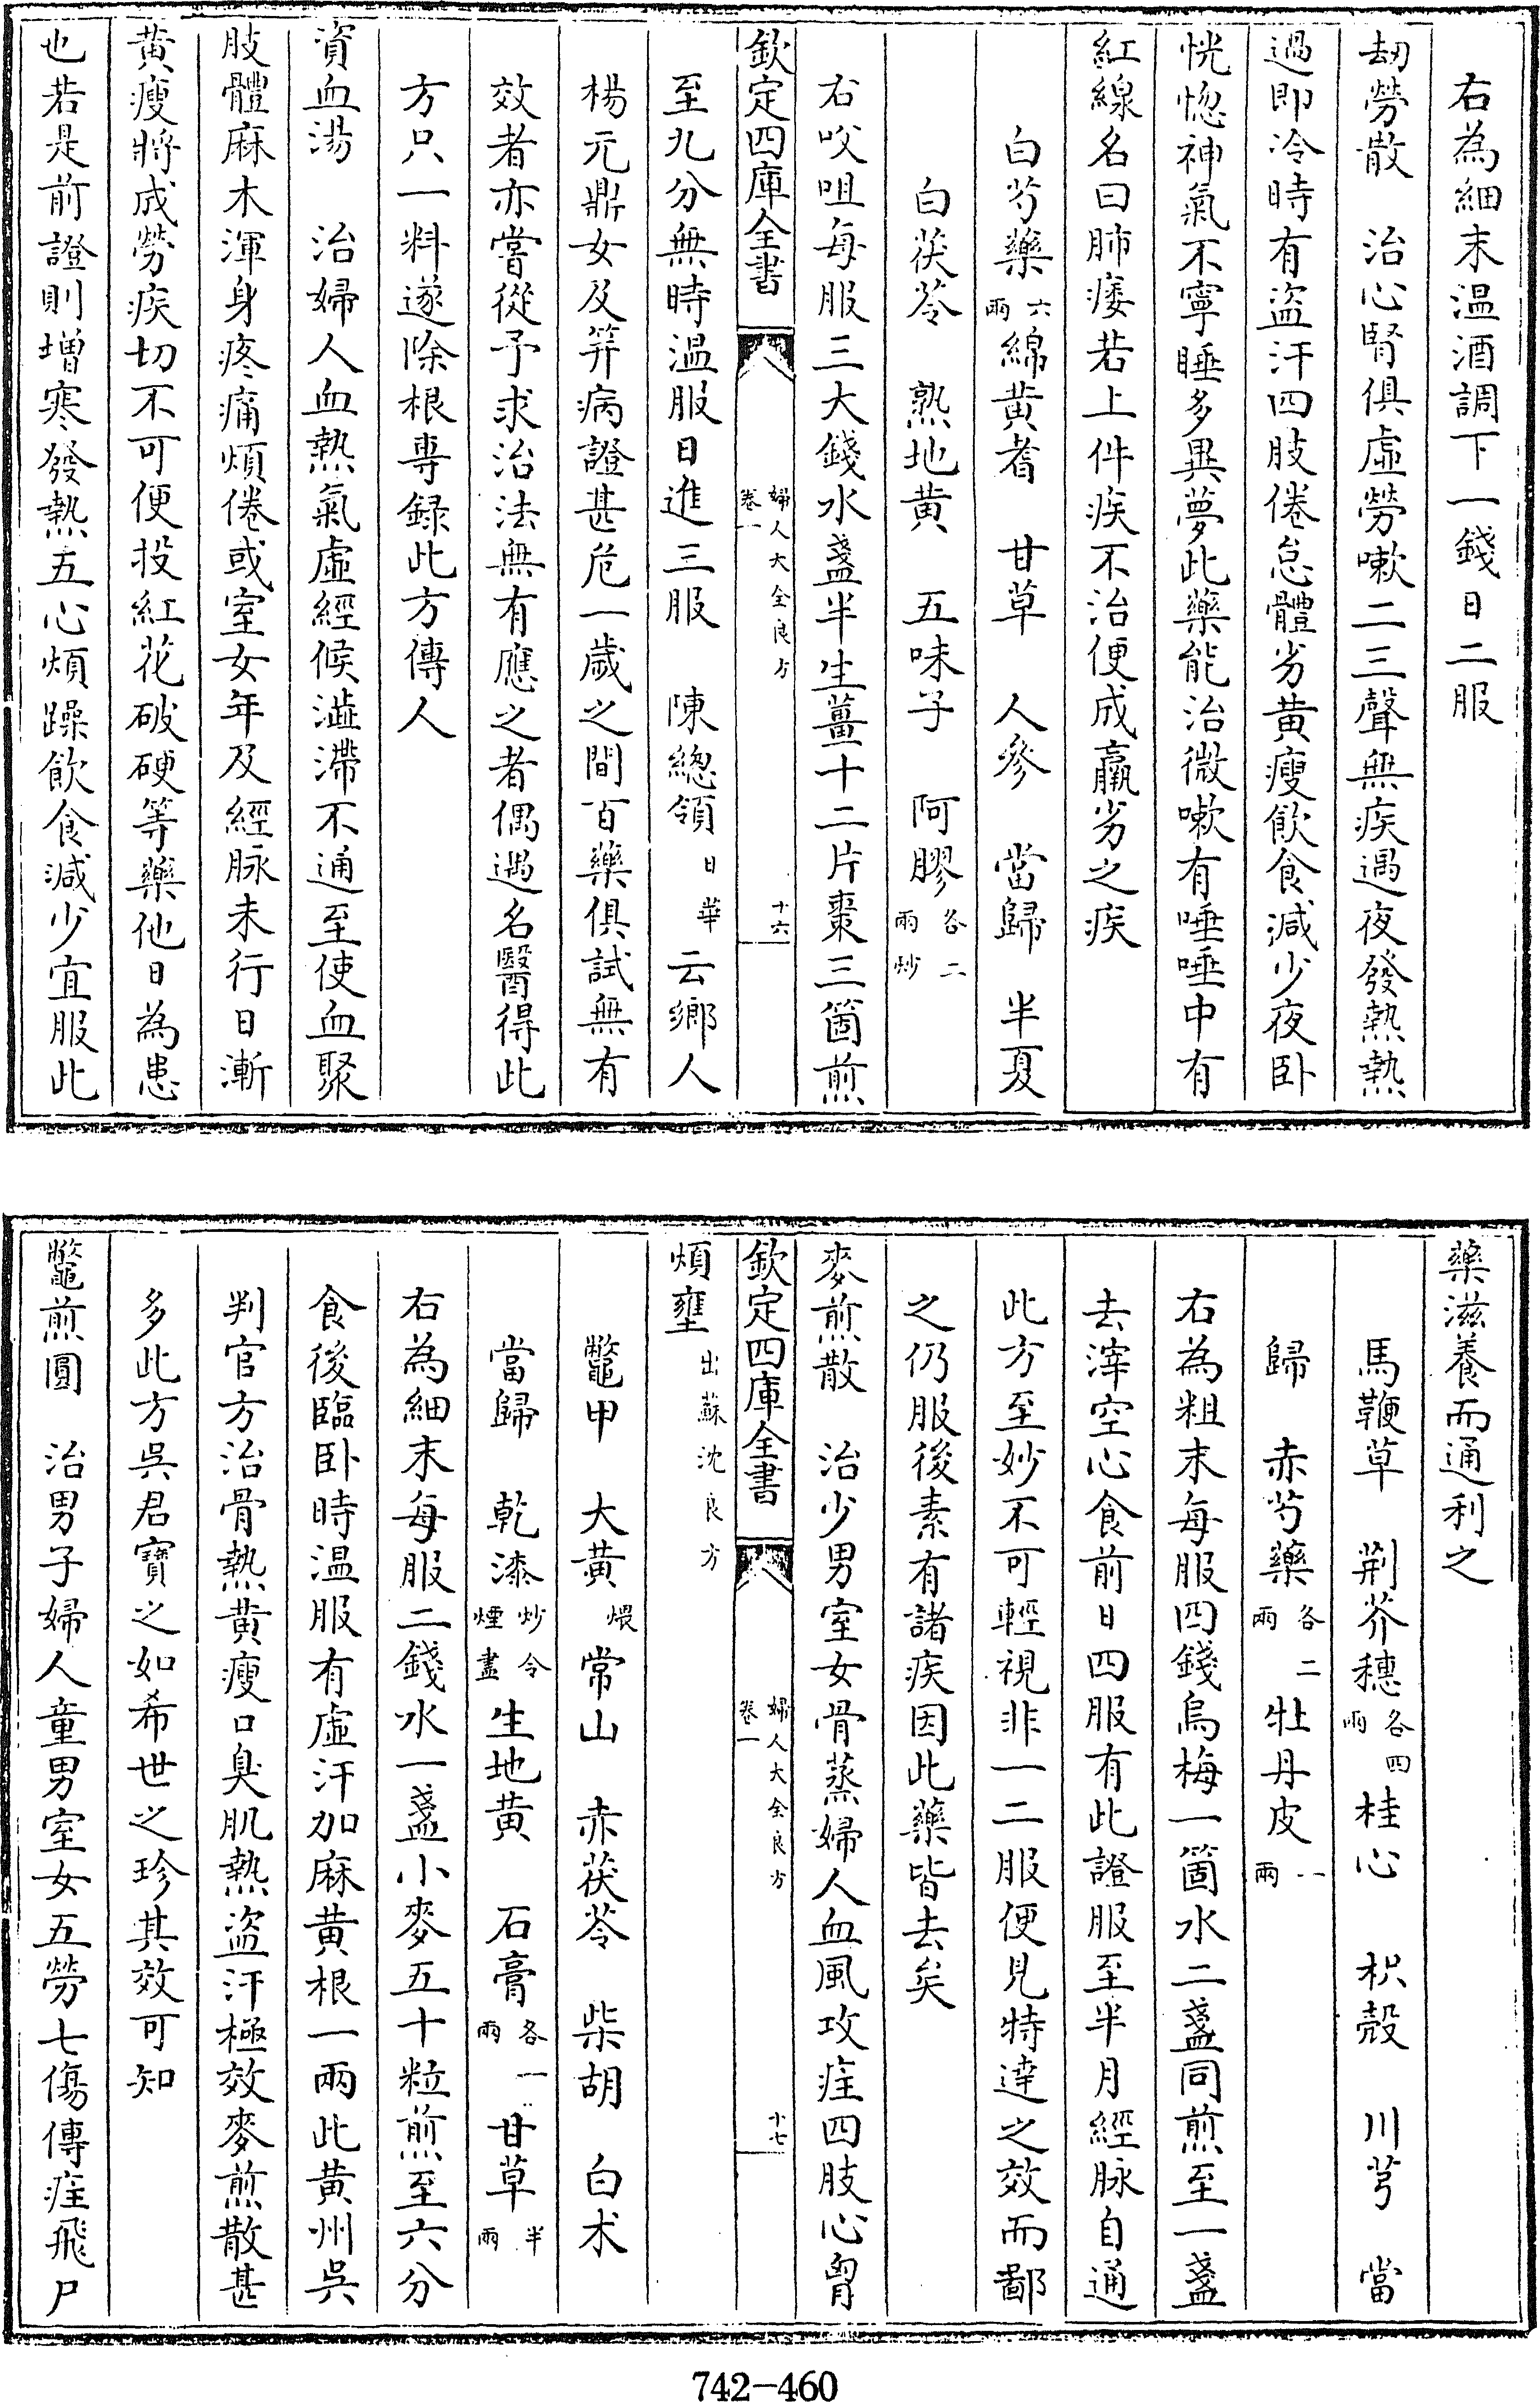 右為細末温酒調下一錢日二服
刼勞散　治心腎俱虛勞嗽二三聲無疾遇夜發熱熱
過即冷時有盜汗四肢倦怠體劣黄瘦飲食減少夜卧
恍惚神氣不寧睡多異夢此藥能治微嗽有唾唾中有
紅線名曰肺痿若上件疾不治便成羸劣之疾
白芍藥六兩綿黄耆　甘草　人參　當歸　半夏
白茯苓　熟地黄　五味子　阿膠各二兩炒
右㕮咀每服三大錢水盞半生薑十二片棗三箇煎
欽定四庫全書　婦人大全良方卷一　十六
至九分無時温服日進三服　陳總領日華云鄉人
楊元鼎女及笄病證甚危一歲之間百藥俱試無有
效者亦嘗從予求治法無有應之者偶遇名醫得此
方只一料遂除根專録此方傳人
資血湯　治婦人血熱氣虛經候澁滯不通至使血聚
肢體麻木渾身疼痛煩倦或室女年及經脉未行日漸
黄瘦將成勞疾切不可便投紅花破硬等藥他日為患
也若是前證則增寒發熱五心煩躁飲食減少宜服此
藥滋養而通利之
馬鞭草　荆芥穗各四兩桂心　枳殻　川芎　當
歸　赤芍藥各二兩牡丹皮一兩
右為粗末每服四錢烏梅一箇水二盞同煎至一盞
去滓空心食前日四服有此證服至半月經脉自通
此方至妙不可輕視非一二服便見特達之效而鄙
之仍服後素有諸疾因此藥皆去矣
麥煎散　治少男室女骨蒸婦人血風攻疰四肢心胷
欽定四庫全書　婦人大全良方卷一　十七
煩壅出蘇沈良方
鼈甲　大黄煨常山　赤茯苓　柴胡　白术
當歸　乾漆炒令煙盡生地黄　石膏各一兩甘草半兩
右為細末每服二錢水一盞小麥五十粒煎至六分
食後臨卧時温服有虛汗加麻黄根一兩此黄州吳
判官方治骨熱黄瘦口臭肌熱盜汗極效麥煎散甚
多此方吳君寶之如希世之珍其效可知
鼈煎圓　治男子婦人童男室女五勞七傷傳疰飛尸
742-460